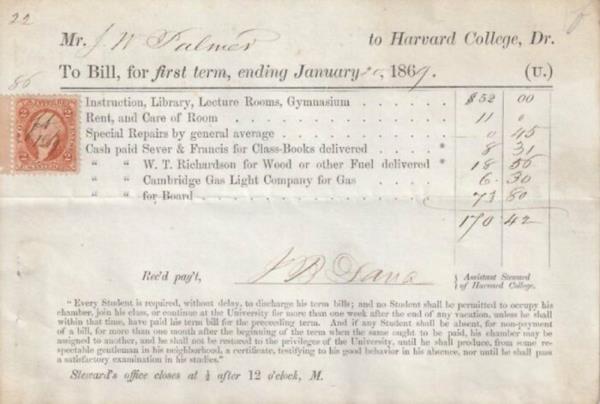 22
Mr. J. W. Palmer to Harvard College, Dr.
To Bill, for first term, ending January 20, 1869. (U.)
86
Instruction, Library, Lecture Rooms, Gymnasium . . . . . . $52 00
Rent, and Care of Room . . . . . . . . . . 11 0
Special Repairs by general average . . . . . . . . . 0 45
Cash paid Sever & Francis for Class-Books delivered . . . . * 8 31
" " W. T. Richardson for Wood or other Fuel delivered * 18 56
" " Cambridge Gas Light Company for Gas . . . . . 6 30
" " for Board . . . . . . . . . . . . 73 80
170.42
Rec'd pay't, J B Dana } Assistant Steward
of Harvard College.
"Every Student is required, without delay, to discharge his term bills; and no Student shall be permitted to occupy his
chamber, join his class, or continue at the University for more than one week after the end of any vacation, unless he shall
within that time, have paid his term bill for the preceeding term. And if any Student shall be absent, for non-payment
of a bill, for more than one month after the beginning of the term when the same ought to be paid, his chamber may be
assigned to another, and he shall not be restored to the privileges of the University, until he shall produce, from some re-
spectable gentleman in his neighborhood, a certificate, testifying to his good behavior in his absence, nor until he shall pass
a satisfactory examination in his studies."
Steward's office closes at ½ after 12 o'clock, M.